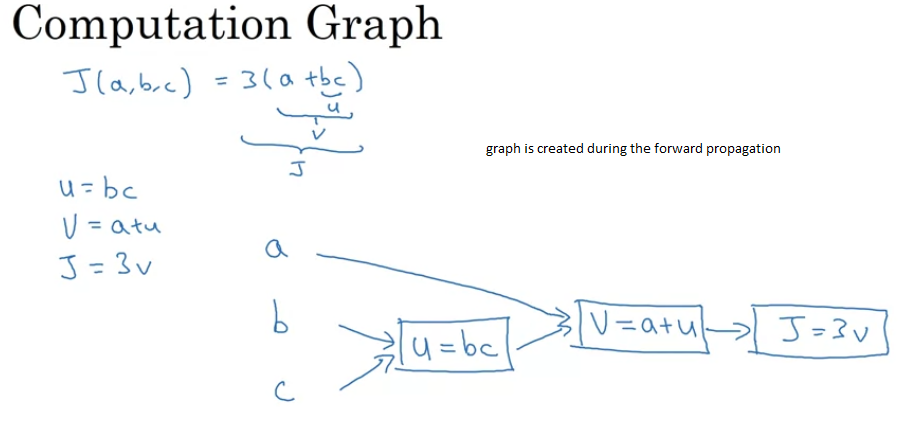 Computation Graph
J(a,b,c) = 3(a+bc)
u
v
J
graph is created during the forward propagation
u = bc
V = a+u
J = 3v
a
b
c
u = bc
V = a+u
J = 3v